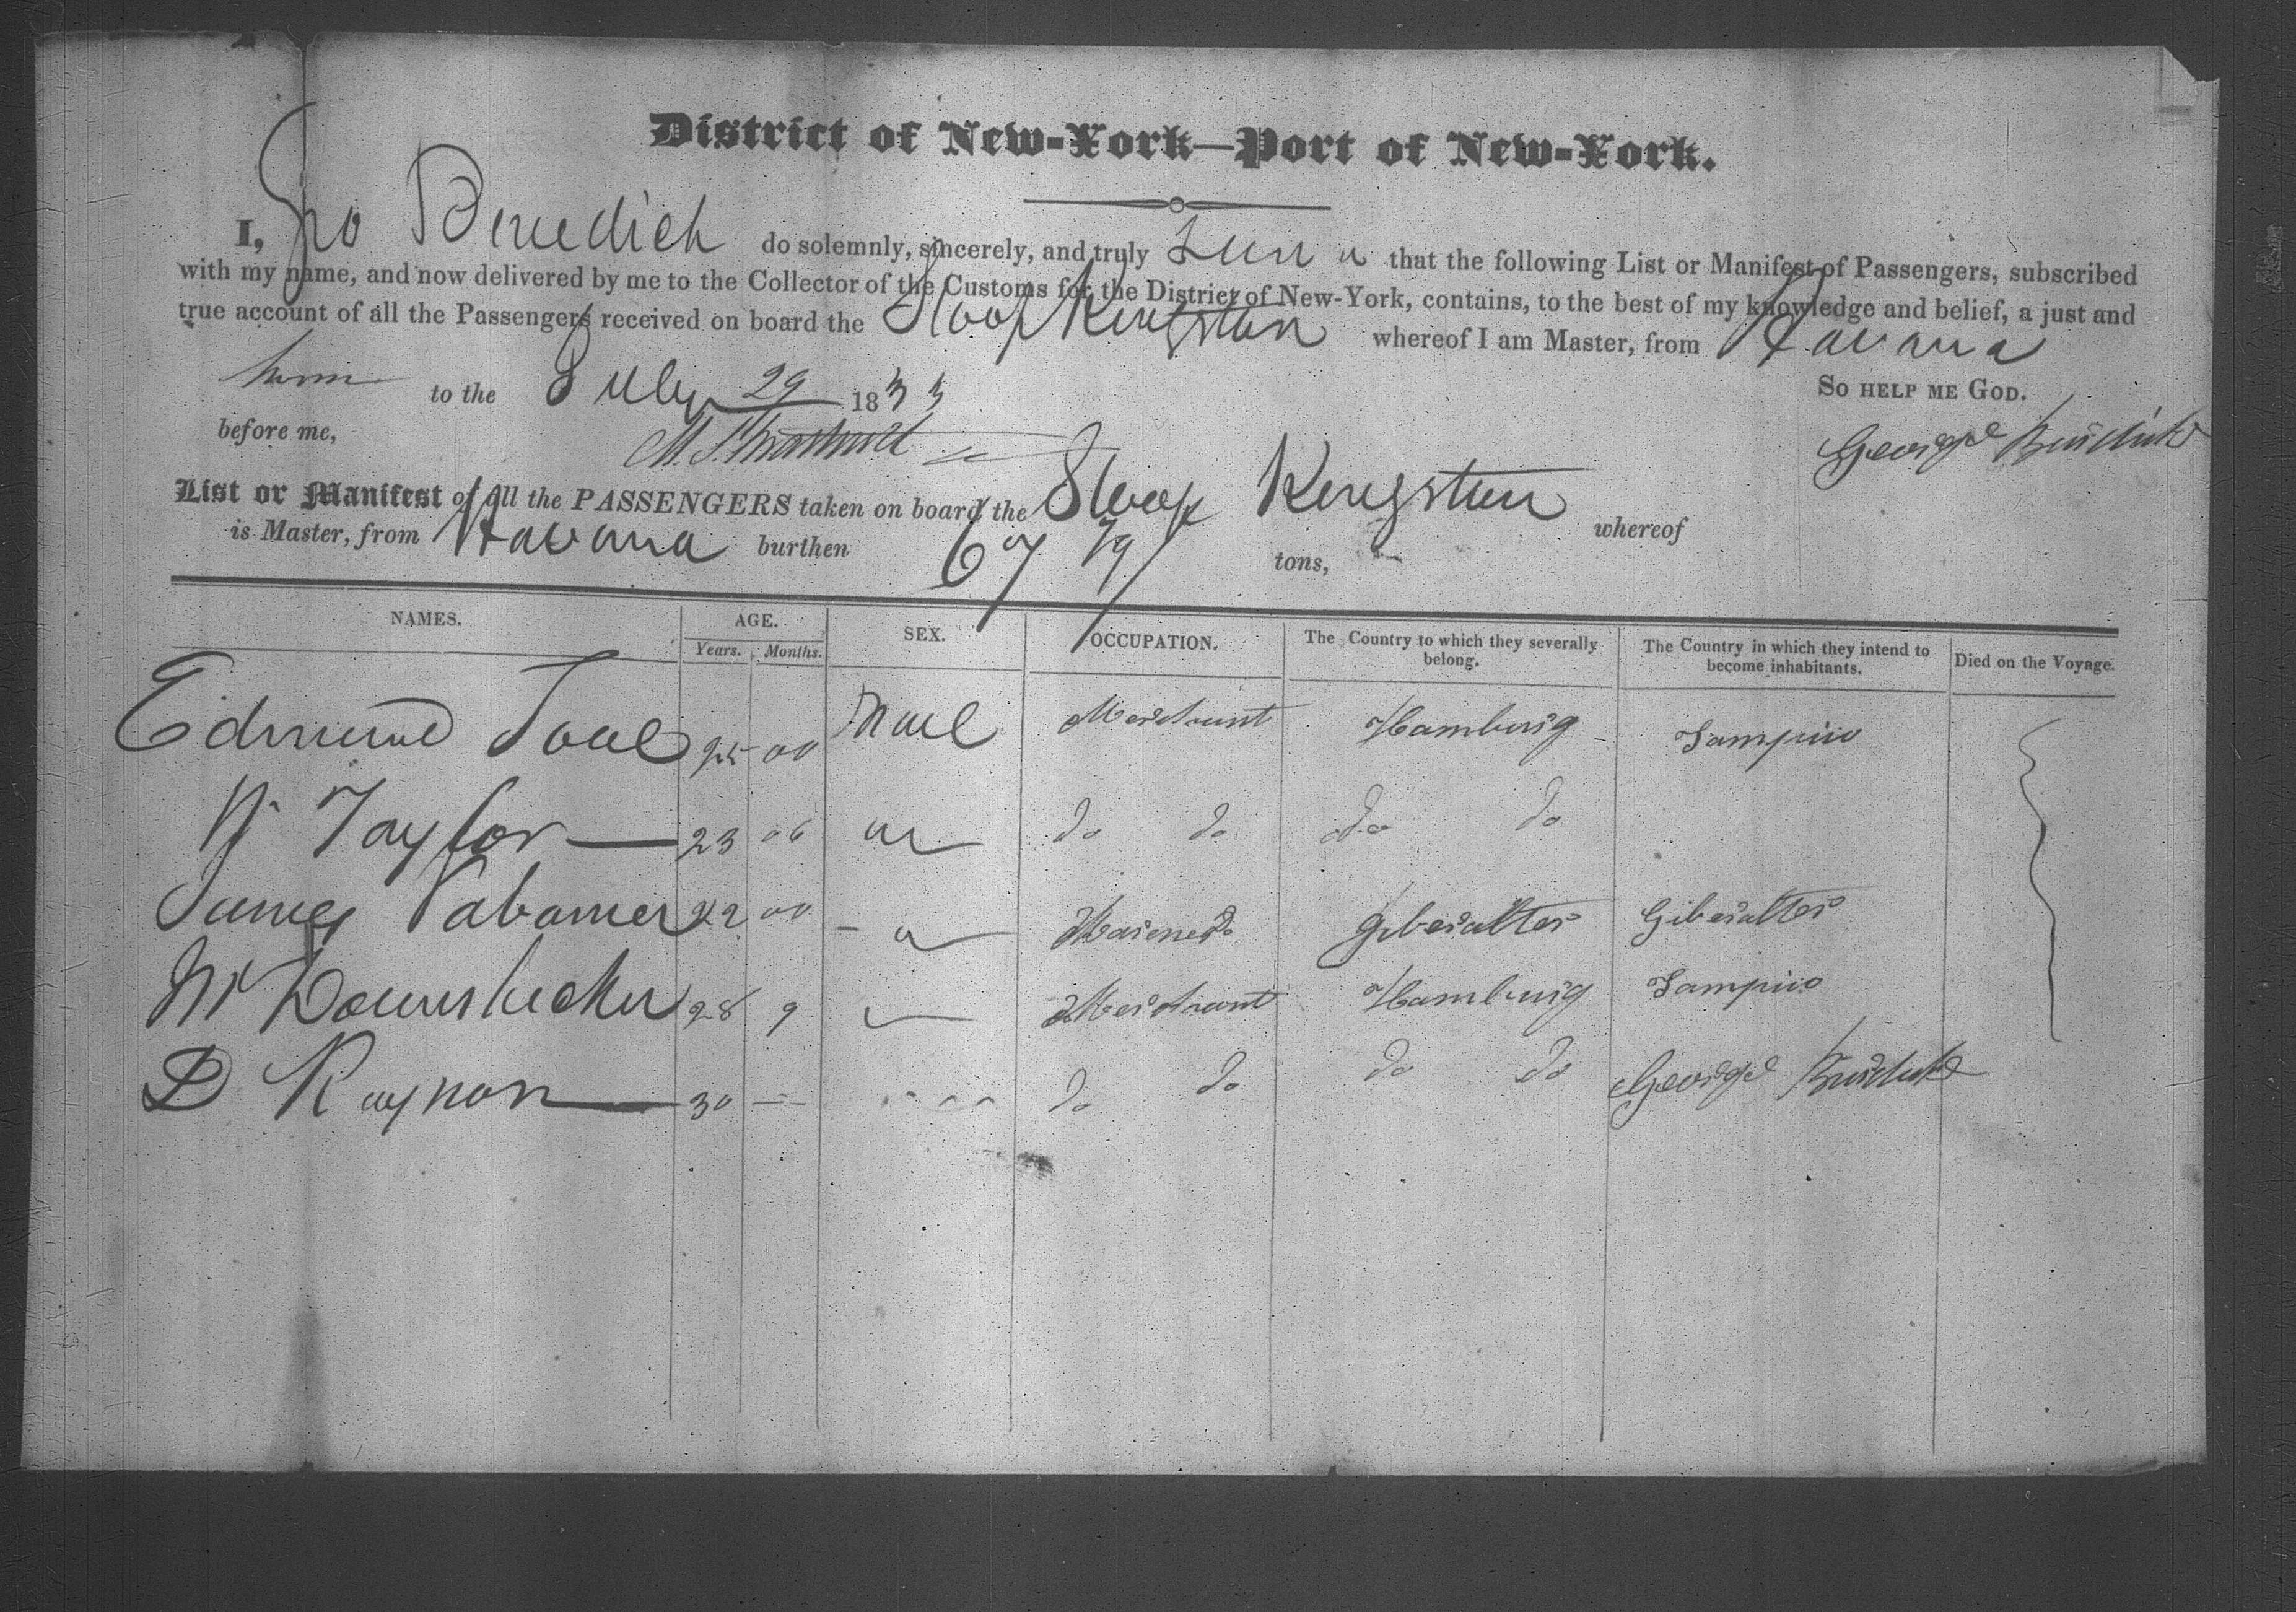 District of New-York—Port of New-York.
I, Geo Benedich do solemnly, sincerely, and truly that the following List or Manifest of Passengers, subscribed
with my name, and now delivered by me to the Collector of the Customs for the District of New-York, contains, to the best of my knowledge and belief, a just and
true account of all the Passengers received on board the Sloop Kingston whereof I am Master, from Havana
to the July 29 1833 So HELP ME GOD.
before me,
George
List or Manifest of all the PASSENGERS taken on board the Sloop Kingston whereof
is Master, from Havana burthen 67 tons,
NAMES. AGE. SEX. OCCUPATION. The Country to which they severally belong. The Country in which they intend to become inhabitants. Died on the Voyage.
Years. Months.
Edmund 25 00 Male Merchant Hamburg Tampico
Taylor 23 06 do do do do
James 22 00 Mariner Giberalter Giberalter
28 9 Merchant Hamburg Tampico
D Raynon 30 do do do do George